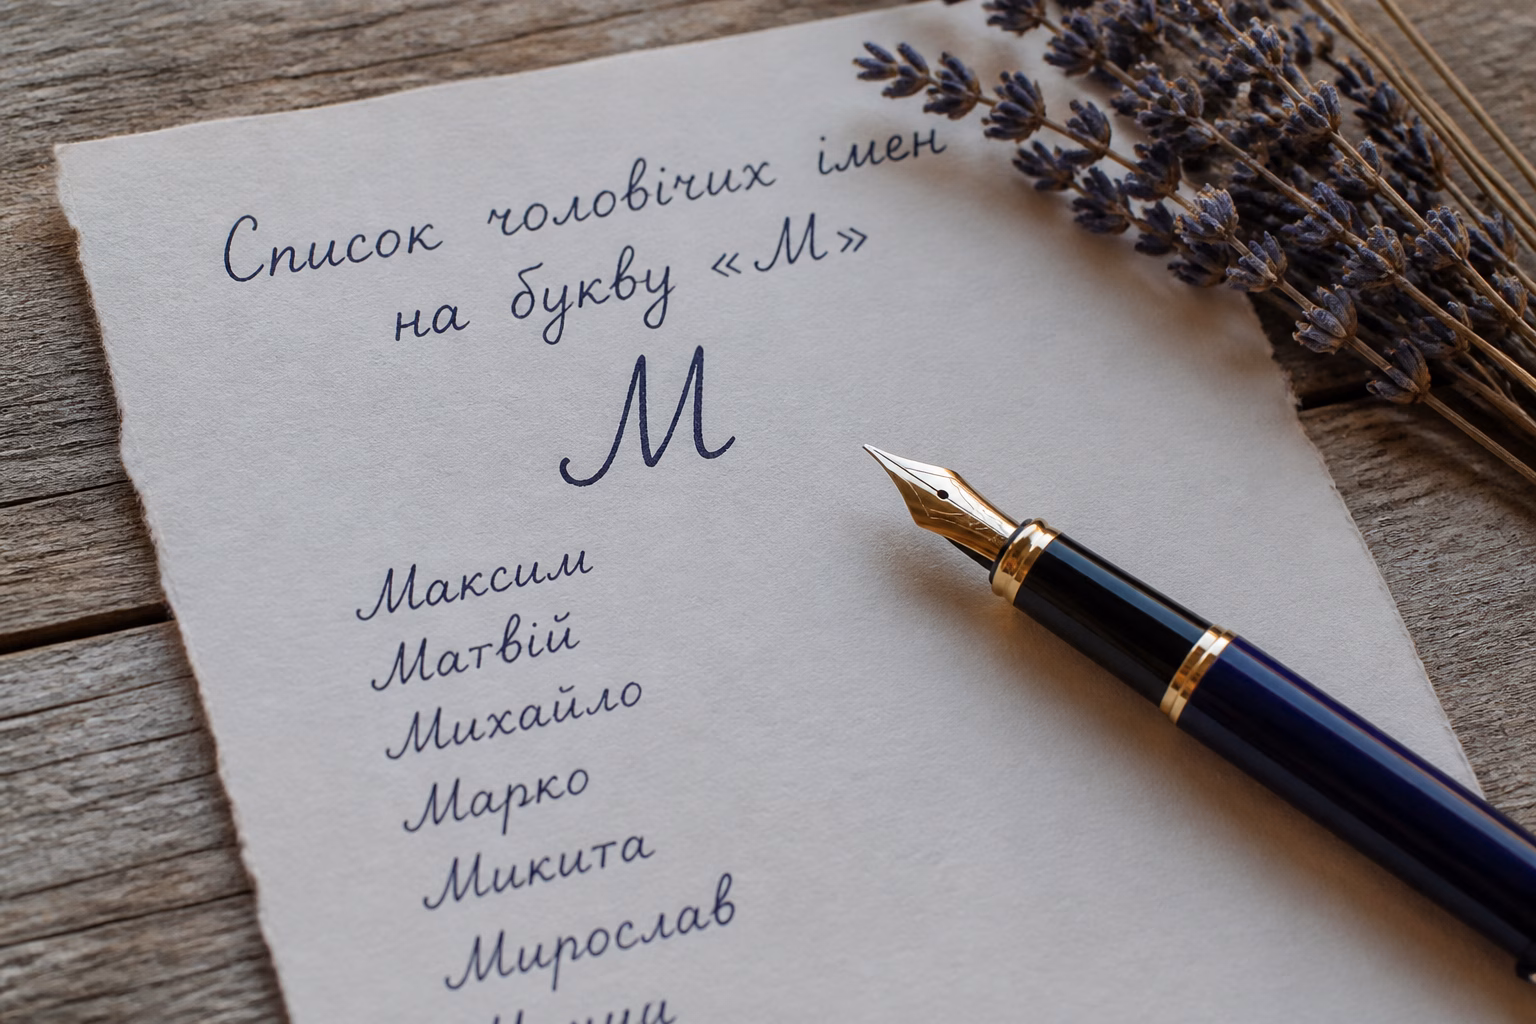 Список чоловічих імен
на букву «М»
М
Максим
Матвій
Михайло
Марко
Микита
Мирослав